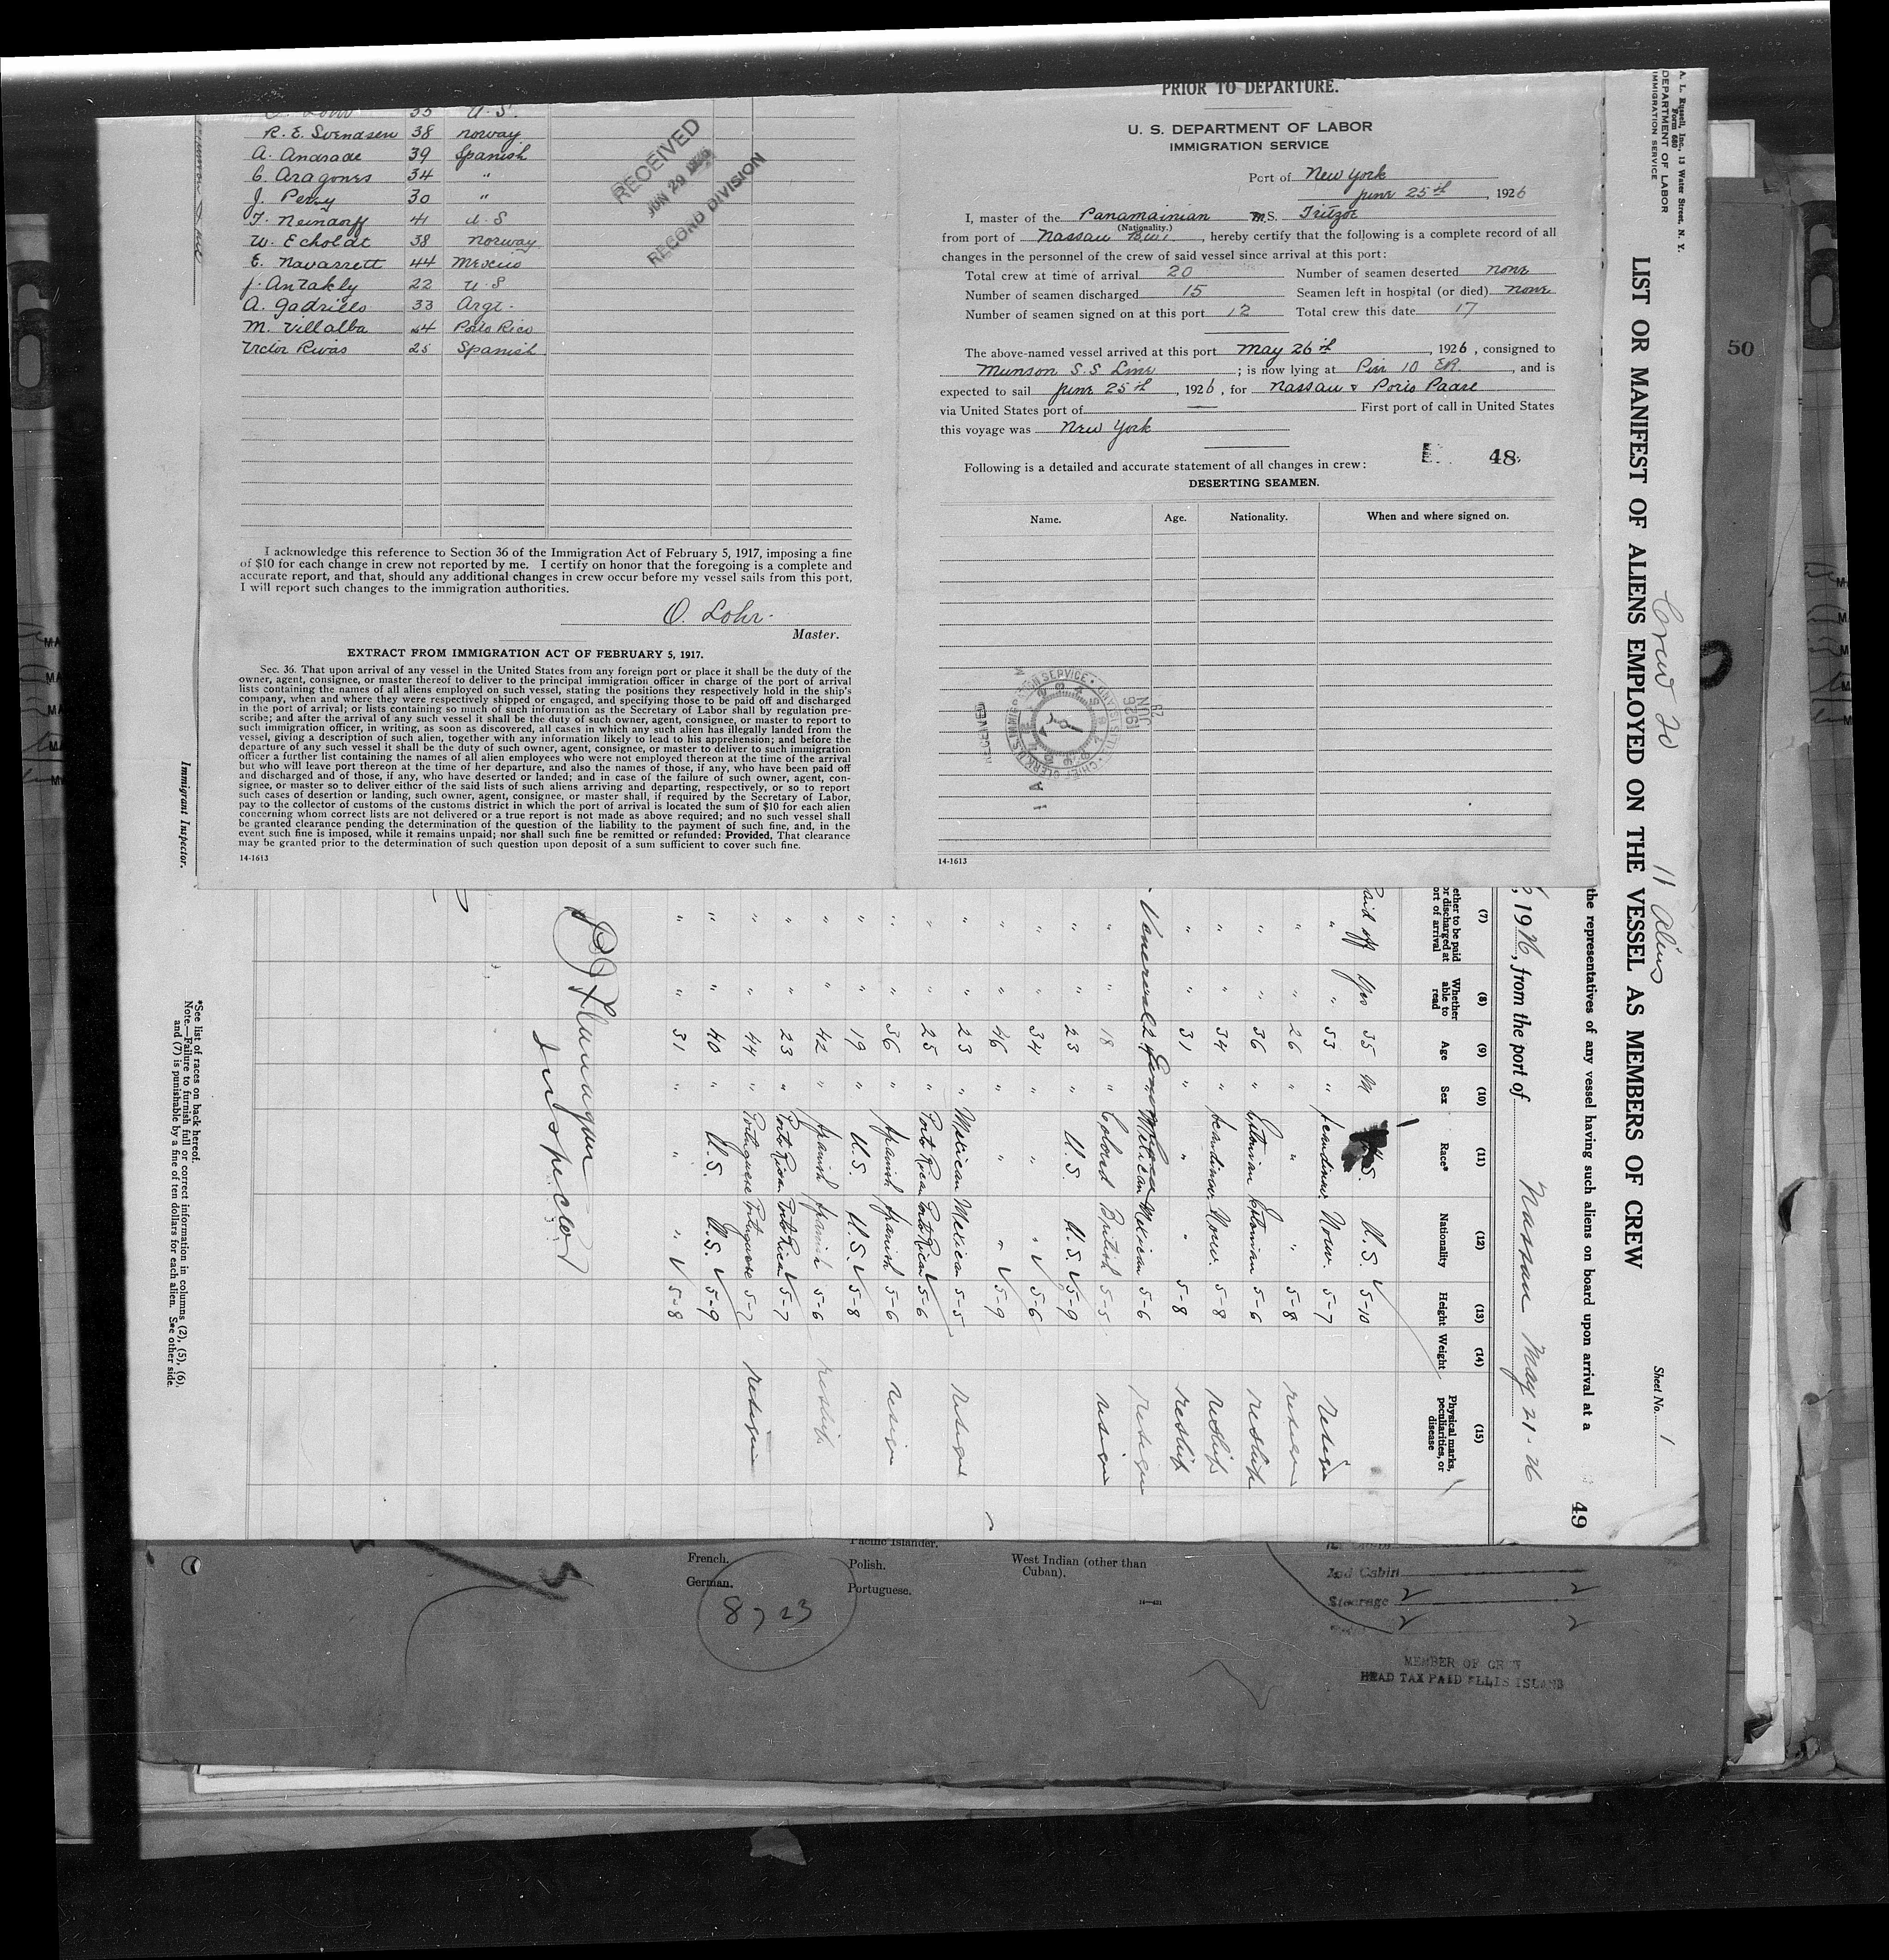 R. E. Svendsen 38 norway
A. Andrade 39 Spanish
C. Aragones 34 "
J. Perry 30 "
T. Neindorff 41 U.S
W. Echoldt 38 norway
E. Navarrett 44 Mexico
J. Antakly 22 U.S
A. Gadrillo 33 Argt.
M. Villalba 24 Porto Rico
Victor Rivas 25 Spanish
RECEIVED
JUN 29 1926
RECORD DIVISION
I acknowledge this reference to Section 36 of the Immigration Act of February 5, 1917, imposing a fine
of $10 for each change in crew not reported by me. I certify on honor that the foregoing is a complete and
accurate report, and that, should any additional changes in crew occur before my vessel sails from this port,
I will report such changes to the immigration authorities.
O. Lohr.
Master.
EXTRACT FROM IMMIGRATION ACT OF FEBRUARY 5, 1917.
Sec. 36. That upon arrival of any vessel in the United States from any foreign port or place it shall be the duty of the
owner, agent, consignee, or master thereof to deliver to the principal immigration officer in charge of the port of arrival
lists containing the names of all aliens employed on such vessel, stating the positions they respectively hold in the ship's
company, when and where they were respectively shipped or engaged, and specifying those to be paid off and discharged
in the port of arrival; or lists containing so much of such information as the Secretary of Labor shall by regulation pre-
scribe; and after the arrival of any such vessel it shall be the duty of such owner, agent, consignee, or master to report to
such immigration officer, in writing, as soon as discovered, all cases in which any such alien has illegally landed from the
vessel, giving a description of such alien, together with any information likely to lead to his apprehension; and before the
departure of any such vessel it shall be the duty of such owner, agent, consignee, or master to deliver to such immigration
officer a further list containing the names of all alien employees who were not employed thereon at the time of the arrival
but who will leave port thereon at the time of her departure, and also the names of those, if any, who have been paid off
and discharged and of those, if any, who have deserted or landed; and in case of the failure of such owner, agent, con-
signee, or master so to deliver either of the said lists of such aliens arriving and departing, respectively, or so to report
such cases of desertion or landing, such owner, agent, consignee, or master shall, if required by the Secretary of Labor,
pay to the collector of customs of the customs district in which the port of arrival is located the sum of $10 for each alien
concerning whom correct lists are not delivered or a true report is not made as above required; and no such vessel shall
be granted clearance pending the determination of the question of the liability to the payment of such fine, and, in the
event such fine is imposed, while it remains unpaid; nor shall such fine be remitted or refunded: Provided, That clearance
may be granted prior to the determination of such question upon deposit of a sum sufficient to cover such fine.
14-1613
PRIOR TO DEPARTURE.
U. S. DEPARTMENT OF LABOR
IMMIGRATION SERVICE
Port of New York
June 25th, 1926
I, master of the Panamainian M.S. Tritzoe
(Nationality.)
from port of Nassau B.W.I., hereby certify that the following is a complete record of all
changes in the personnel of the crew of said vessel since arrival at this port:
Total crew at time of arrival 20 Number of seamen deserted none
Number of seamen discharged 15 Seamen left in hospital (or died) none
Number of seamen signed on at this port 12 Total crew this date 17
The above-named vessel arrived at this port May 26th, 1926, consigned to
Munson S.S Line; is now lying at Pier 10 ER., and is
expected to sail June 25th, 1926, for Nassau &
via United States port of — First port of call in United States
this voyage was New York
48
Following is a detailed and accurate statement of all changes in crew:
DESERTING SEAMEN.
Name. Age. Nationality. When and where signed on.
RECEIVED
28 JUN 1926
14-1613
A. L. Russell, Inc., 13 Water Street, N. Y.
Form 680
DEPARTMENT OF LABOR
IMMIGRATION SERVICE
Crew 20 11 Aliens
Sheet No. 1
LIST OR MANIFEST OF ALIENS EMPLOYED ON THE VESSEL AS MEMBERS OF CREW
the representatives of any vessel having such aliens on board upon arrival at a
49
, 1926, from the port of Nassau May 21-26
(7) (8) (9) (10) (11) (12) (13) (14) (15)
Whether able to read Age Sex Race* Nationality Height Weight Physical marks, peculiarities, or disease
Paid off Yes 35 M U.S. U.S. 5-10
" " 53 " Scandinav. Norw. 5-7 Resign
" " 26 " " " 5-8 resign
" " 36 " Estonian Estonian 5-6 reship
" " 34 " Scandinav. Norw. 5-8 reship
" " 31 " " " 5-8 reship
Mexican Mexican 5-6 Resign
" " 18 " Colored British 5-5 resign
" " 23 " U.S. U.S. 5-9
" " 34 " " " 5-6
" " 46 " " " 5-9
" " 23 " Mexican Mexican 5-5
" " 25 " Porto Rican Porto Rican 5-6
" " 36 " Spanish Spanish 5-6 resign
" " 19 " U.S. U.S. 5-8
" " 42 " Spanish Spanish 5-6 reship
" " 23 " Porto Rican Porto Rican 5-7
" " 44 " Portuguese Portuguese 5-7 resign
" " 40 " U.S. U.S. 5-9
" " 31 " " " 5-8
Inspector
Immigrant Inspector.
*See list of races on back hereof.
Note.—Failure to furnish full or correct information in columns (2), (5), (6),
and (7) is punishable by a fine of ten dollars for each alien. See other side.
50
French.
German.
8723
Pacific Islander.
Polish.
Portuguese.
West Indian (other than
Cuban).
2nd Cabin
Steerage 2 2
2 2
MEMBER OF CREW
HEAD TAX PAID ELLIS ISLAND